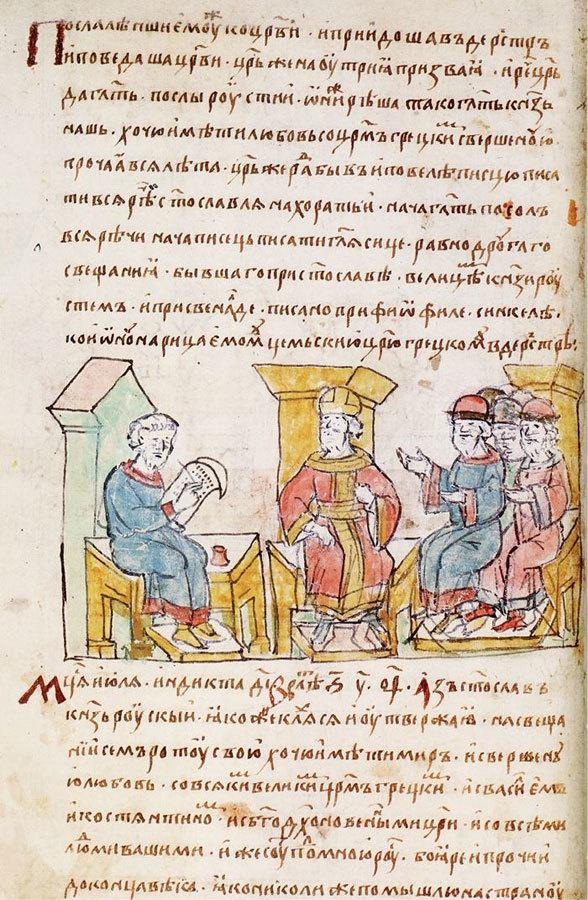 Пославшиемоукоцр҃ви · ипридошавъдерьстръ
иповедашацрв҃и · цр҃ьженаоутриꙗпризваꙗ · ирече цр҃ь
даглт҃ь · послыроустии · ѡнижерѣша такоглт҃ь кнѧзь
нашь · хочюимѣтилюбовьсоцр҃мъгрецкимсвершеноую
прочаꙗвсѧлѣта · цр҃ьжерадъбывъиповелѣписцюписа
тивсѧрѣчи ст҃ославлѧнахоратьи · начаглт҃ьпосолъ
всѧрѣчи начаписецьписатиглѧсице · равнодроугаго
свещаниꙗ · бывшагопристославѣ · велицѣмькнѧзироу
стемъ · иприсвеналде · писаноприфиѡфиле · синкелѣ ·
киѡноарицаемомꙋцемьскииюцр҃югрецкомꙋвъдерьстрѣ ·
Мцⷭ҇ѧиюлѧ · индикта д҃і влѣⷮ ҂ѕ у҃ ѻ҃ѳ · Азъст҃ославъ
кнѧзьроускыи · ꙗкожеклѧсѧиоутвержаю · насвеща
нииземьротоусвою хочюимѣтимиръ · исвершену
юлюбовь · совсѧкимьвеликимцр҃мъгрецкимь · исвасильемъ
икостѧнтиномь · исбгодх҃новенымицр҃и · исовсѣми
людмивашими · ижесоутьподомноюроусь · боꙗреипрочии
доконцавѣка · ꙗконикогдажепомышлюнастрануоу